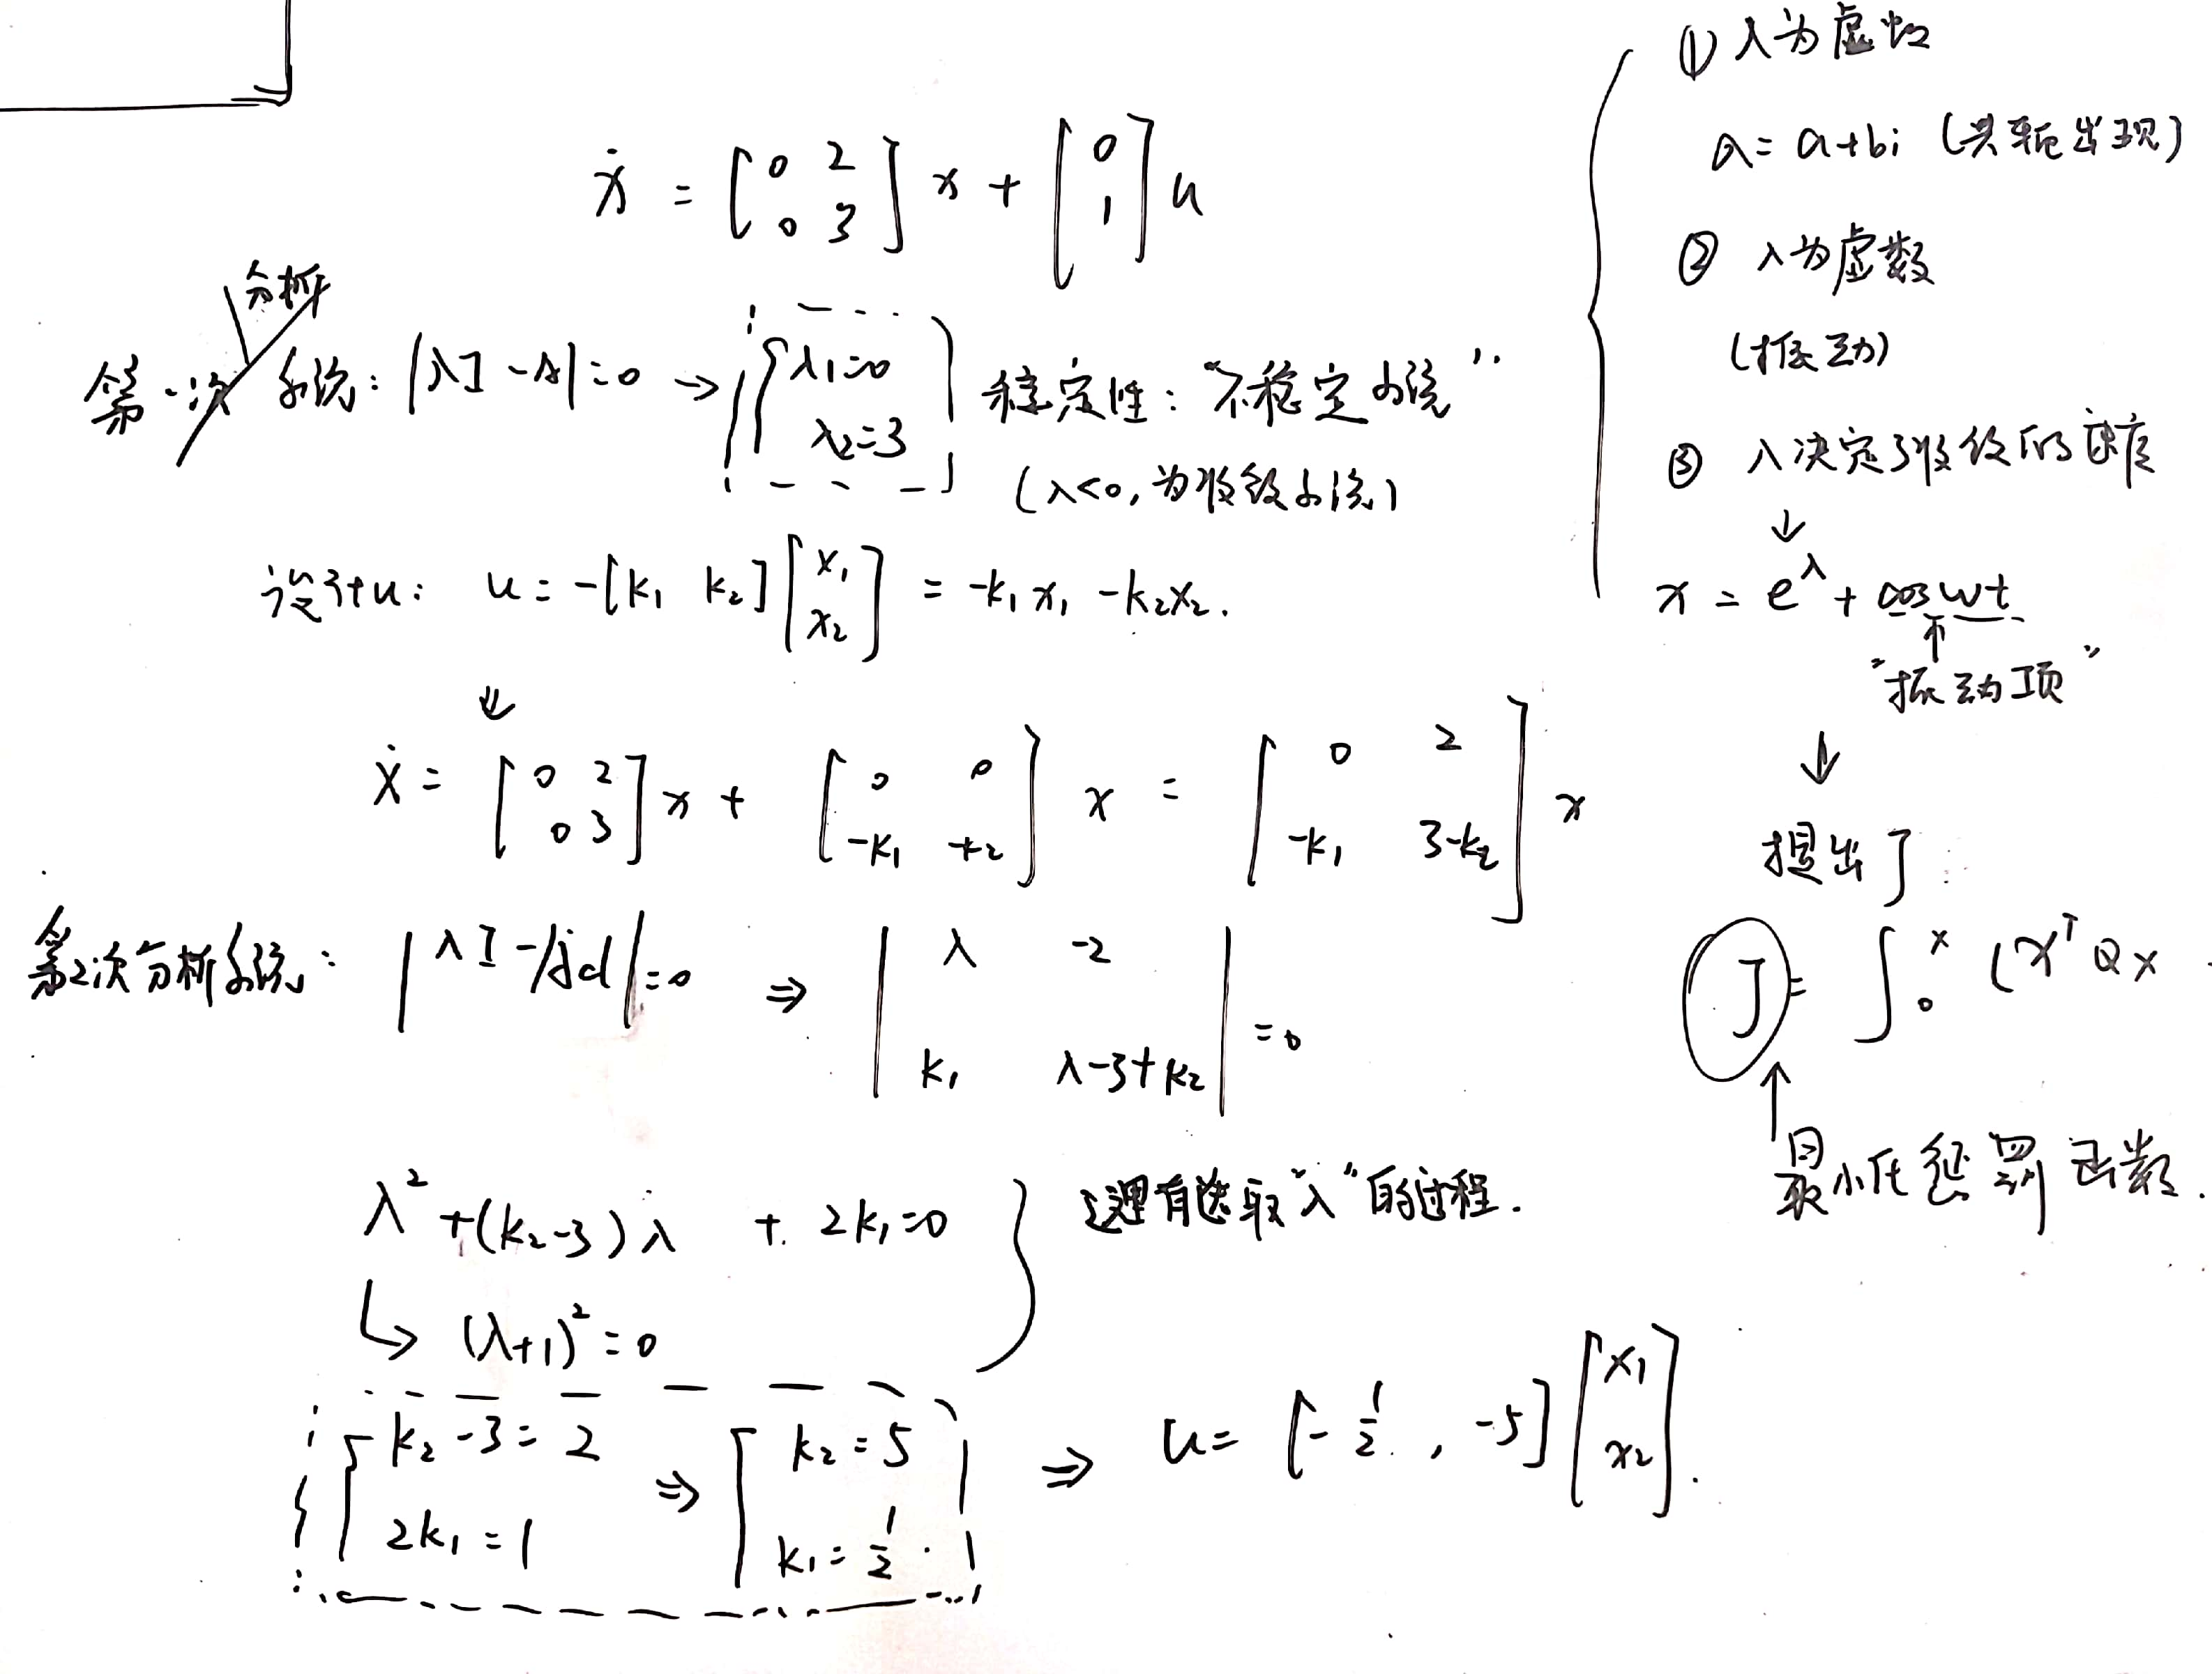 ẋ = [0 2; 0 3] x + [0; 1] u
第一次分析系统: |λI - A| = 0 → {λ1=0 λ2=3 稳定性: "不稳定系统"
(λ<0, 为收敛系统)
设计u: u = -[k1 k2] [x1; x2] = -k1x1 - k2x2.
↓
ẋ = [0 2; 0 3] x + [0 0; -k1 -k2] x = [0 2; -k1 3-k2] x
第2次分析系统: |λI - Acl| = 0 ⇒ |λ -2; k1 λ-3+k2| = 0
λ² + (k2-3)λ + 2k1 = 0
↳ (λ+1)² = 0
这里有选取"λ"的过程.
[k2-3=2; 2k1=1 ⇒ [k2=5; k1=1/2. ⇒ u = [-1/2, -5] [x1; x2].
① λ为虚
a = a+bi (共轭出现)
② λ为虚数
(振动)
③ λ决定了收敛的速度
↓
x = e^λ + cos wt
↑
"振动项"
↓
提出J:
J = ∫₀ˣ (xᵀQx
↑
最小化惩罚函数.